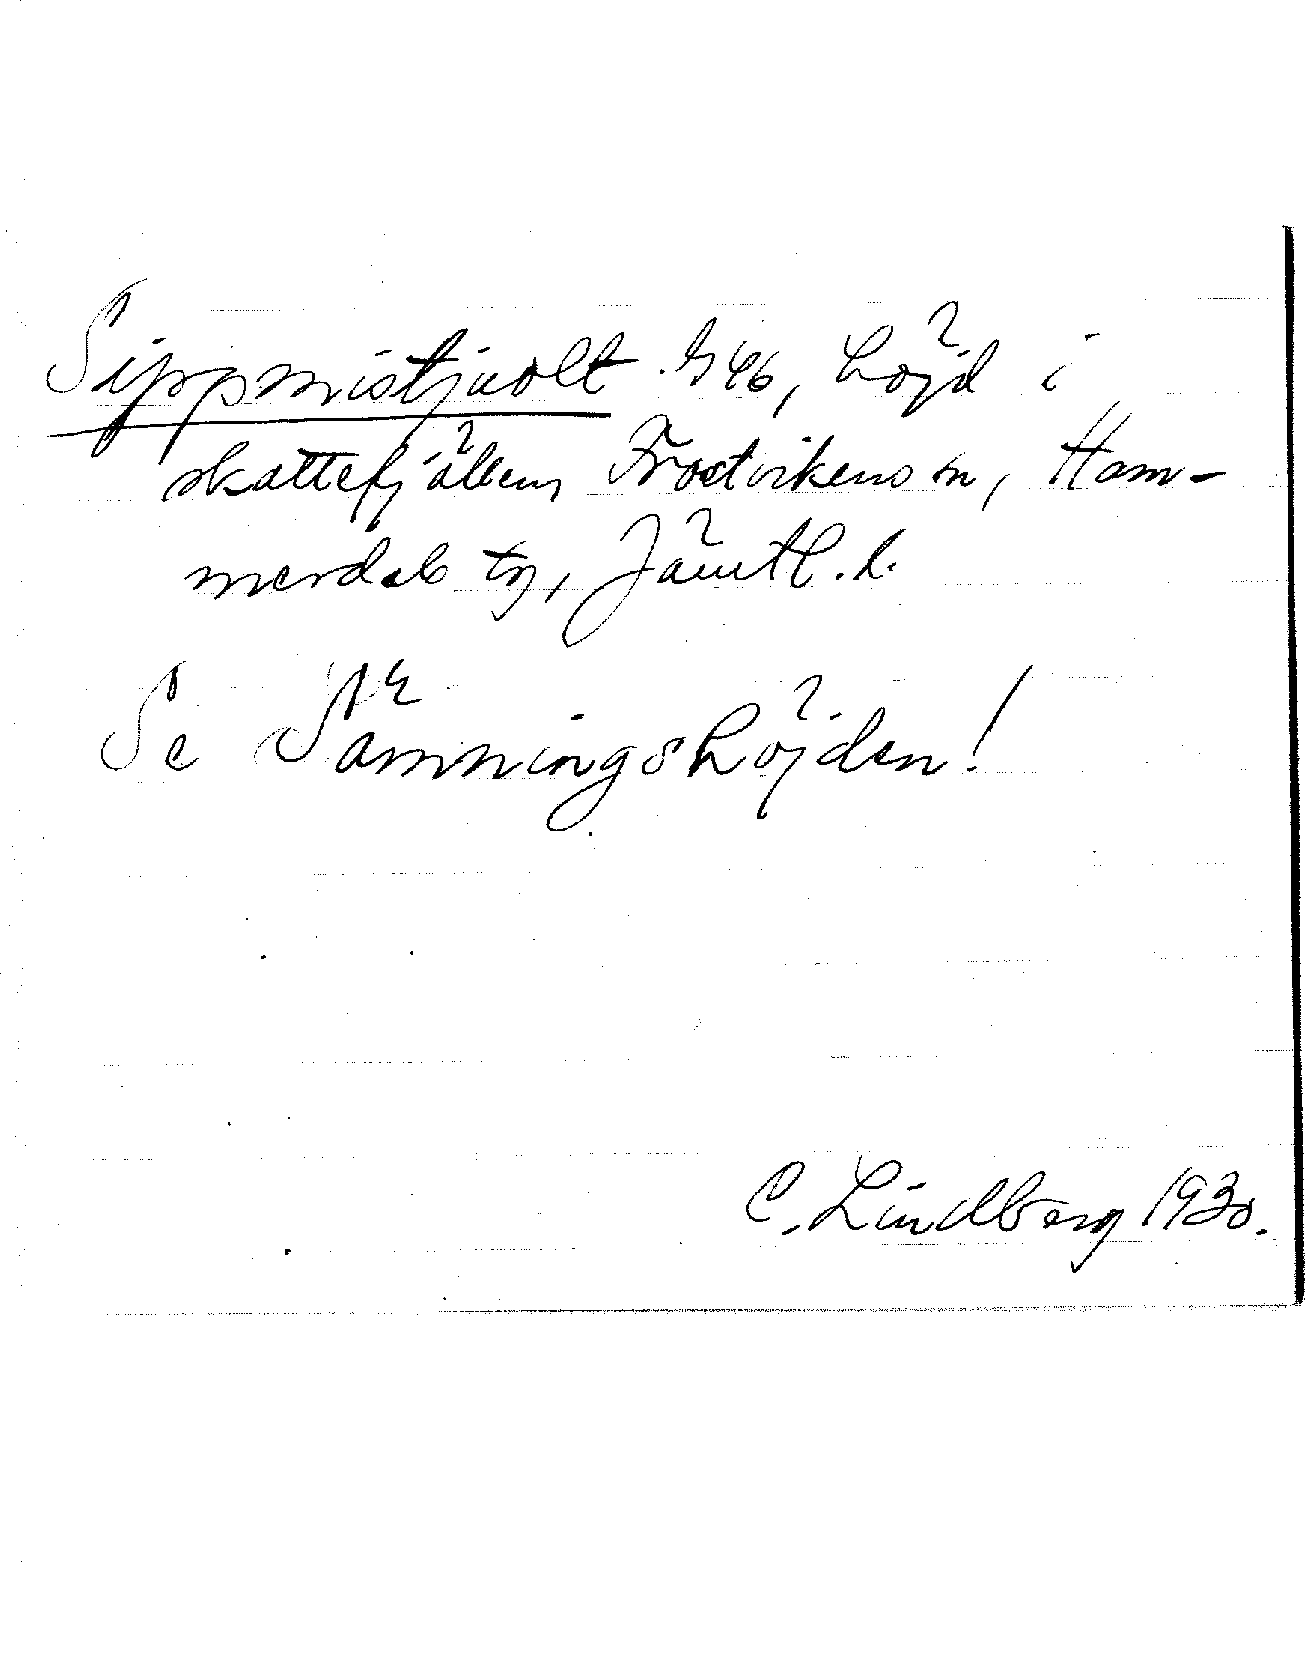 Sippmistjuolt 946, höjd i
skattefjällen, Frostvikens sn, Ham-
merdals tg, Jämtl. l.
Se Sämningshöjden!
C. Lindberg 1930.